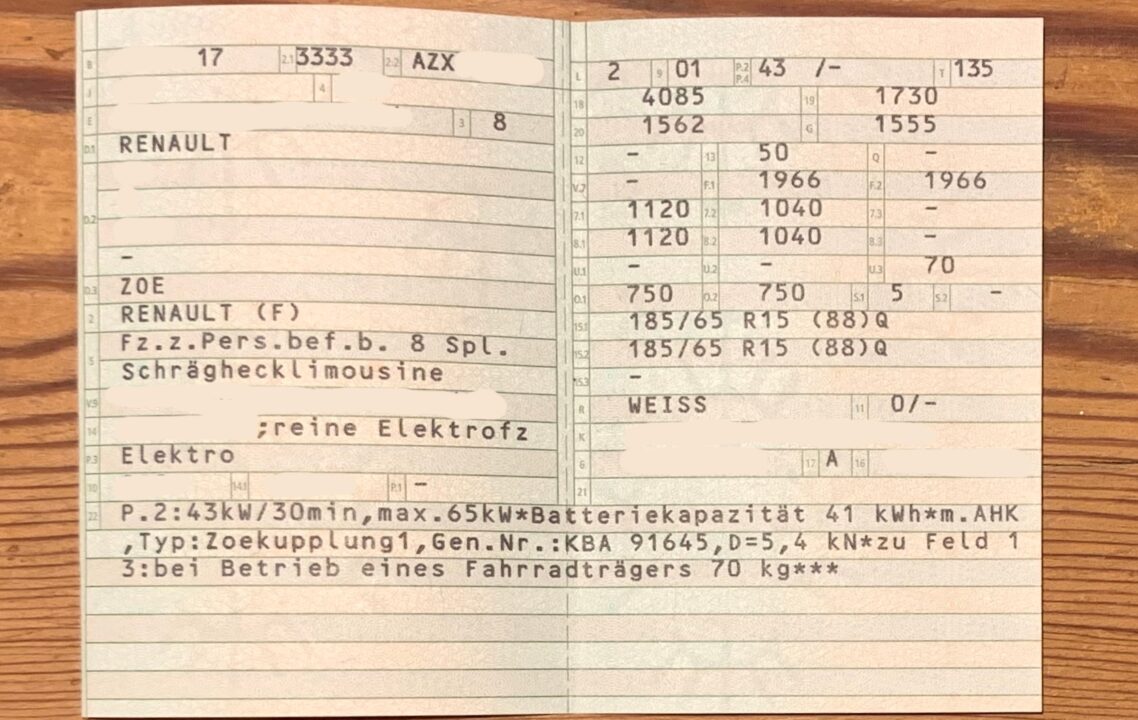 B 17 2.1 3333 2.2 AZX
J 4
E 3 8
D.1 RENAULT
D.2
-
D.3 ZOE
2 RENAULT (F)
5 Fz.z.Pers.bef.b. 8 Spl.
Schräghecklimousine
V.9
14 ;reine Elektrofz
P.3 Elektro
10 14.1 P.1 -
L 2 9 01 P.2 P.4 43 /- T 135
18 4085 19 1730
20 1562 G 1555
12 - 13 50 Q -
V.7 - F.1 1966 F.2 1966
7.1 1120 7.2 1040 7.3 -
8.1 1120 8.2 1040 8.3 -
U.1 - U.2 - U.3 70
O.1 750 O.2 750 S.1 5 S.2 -
15.1 185/65 R15 (88)Q
15.2 185/65 R15 (88)Q
15.3 -
R WEISS 11 0/-
K
6 17 A 16
21
22 P.2:43kW/30min,max.65kW*Batteriekapazität 41 kWh*m.AHK
,Typ:Zoekupplung1,Gen.Nr.:KBA 91645,D=5,4 kN*zu Feld 1
3:bei Betrieb eines Fahrradträgers 70 kg***